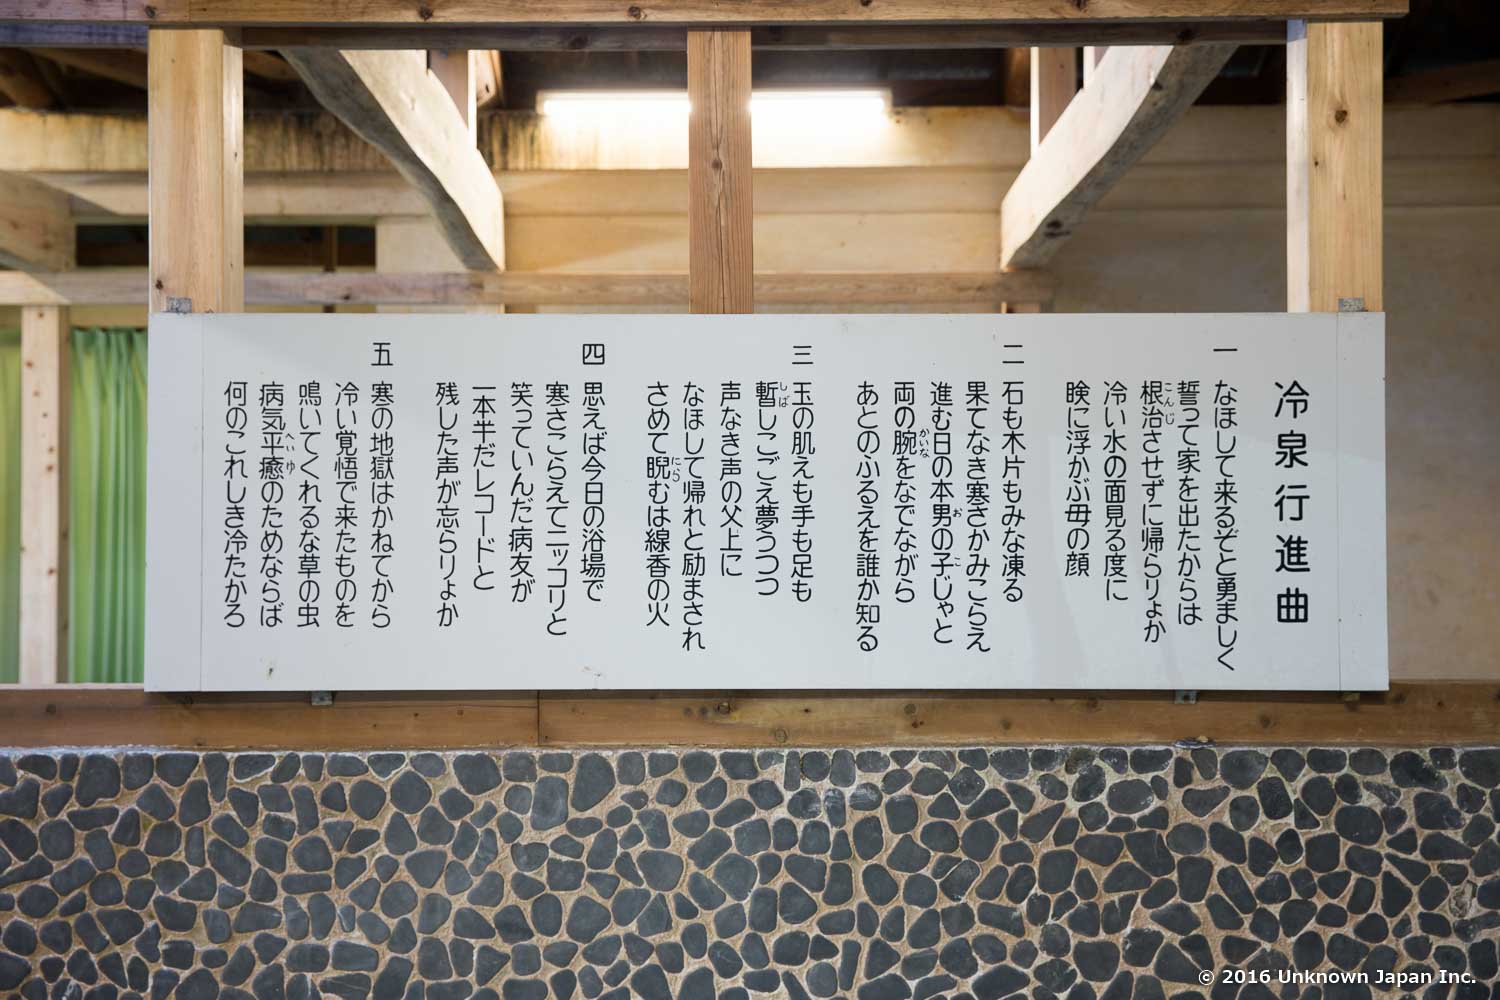 冷泉行進曲
一 なほして来るぞと勇ましく
誓って家を出たからは
根治させずに帰らりょか
こんじ
冷い水の面見る度に
瞼に浮かぶ母の顔
二 石も木片もみな凍る
果てなき寒さかみこらえ
進む日の本男の子じゃと
お こ
両の腕をなでながら
かいな
あとのふるえを誰か知る
三 玉の肌えも手も足も
暫しこごえ夢うつつ
しば
声なき声の父上に
なほして帰れと励まされ
さめて睨むは線香の火
にら
四 思えば今日の浴場で
寒さこらえてニッコリと
笑っていんだ病友が
一本半だレコードと
残した声が忘らりょか
五 寒の地獄はかねてから
冷い覚悟で来たものを
鳴いてくれるな草の虫
病気平癒のためならば
へいゆ
何のこれしき冷たかろ
© 2016 Unknown Japan Inc.